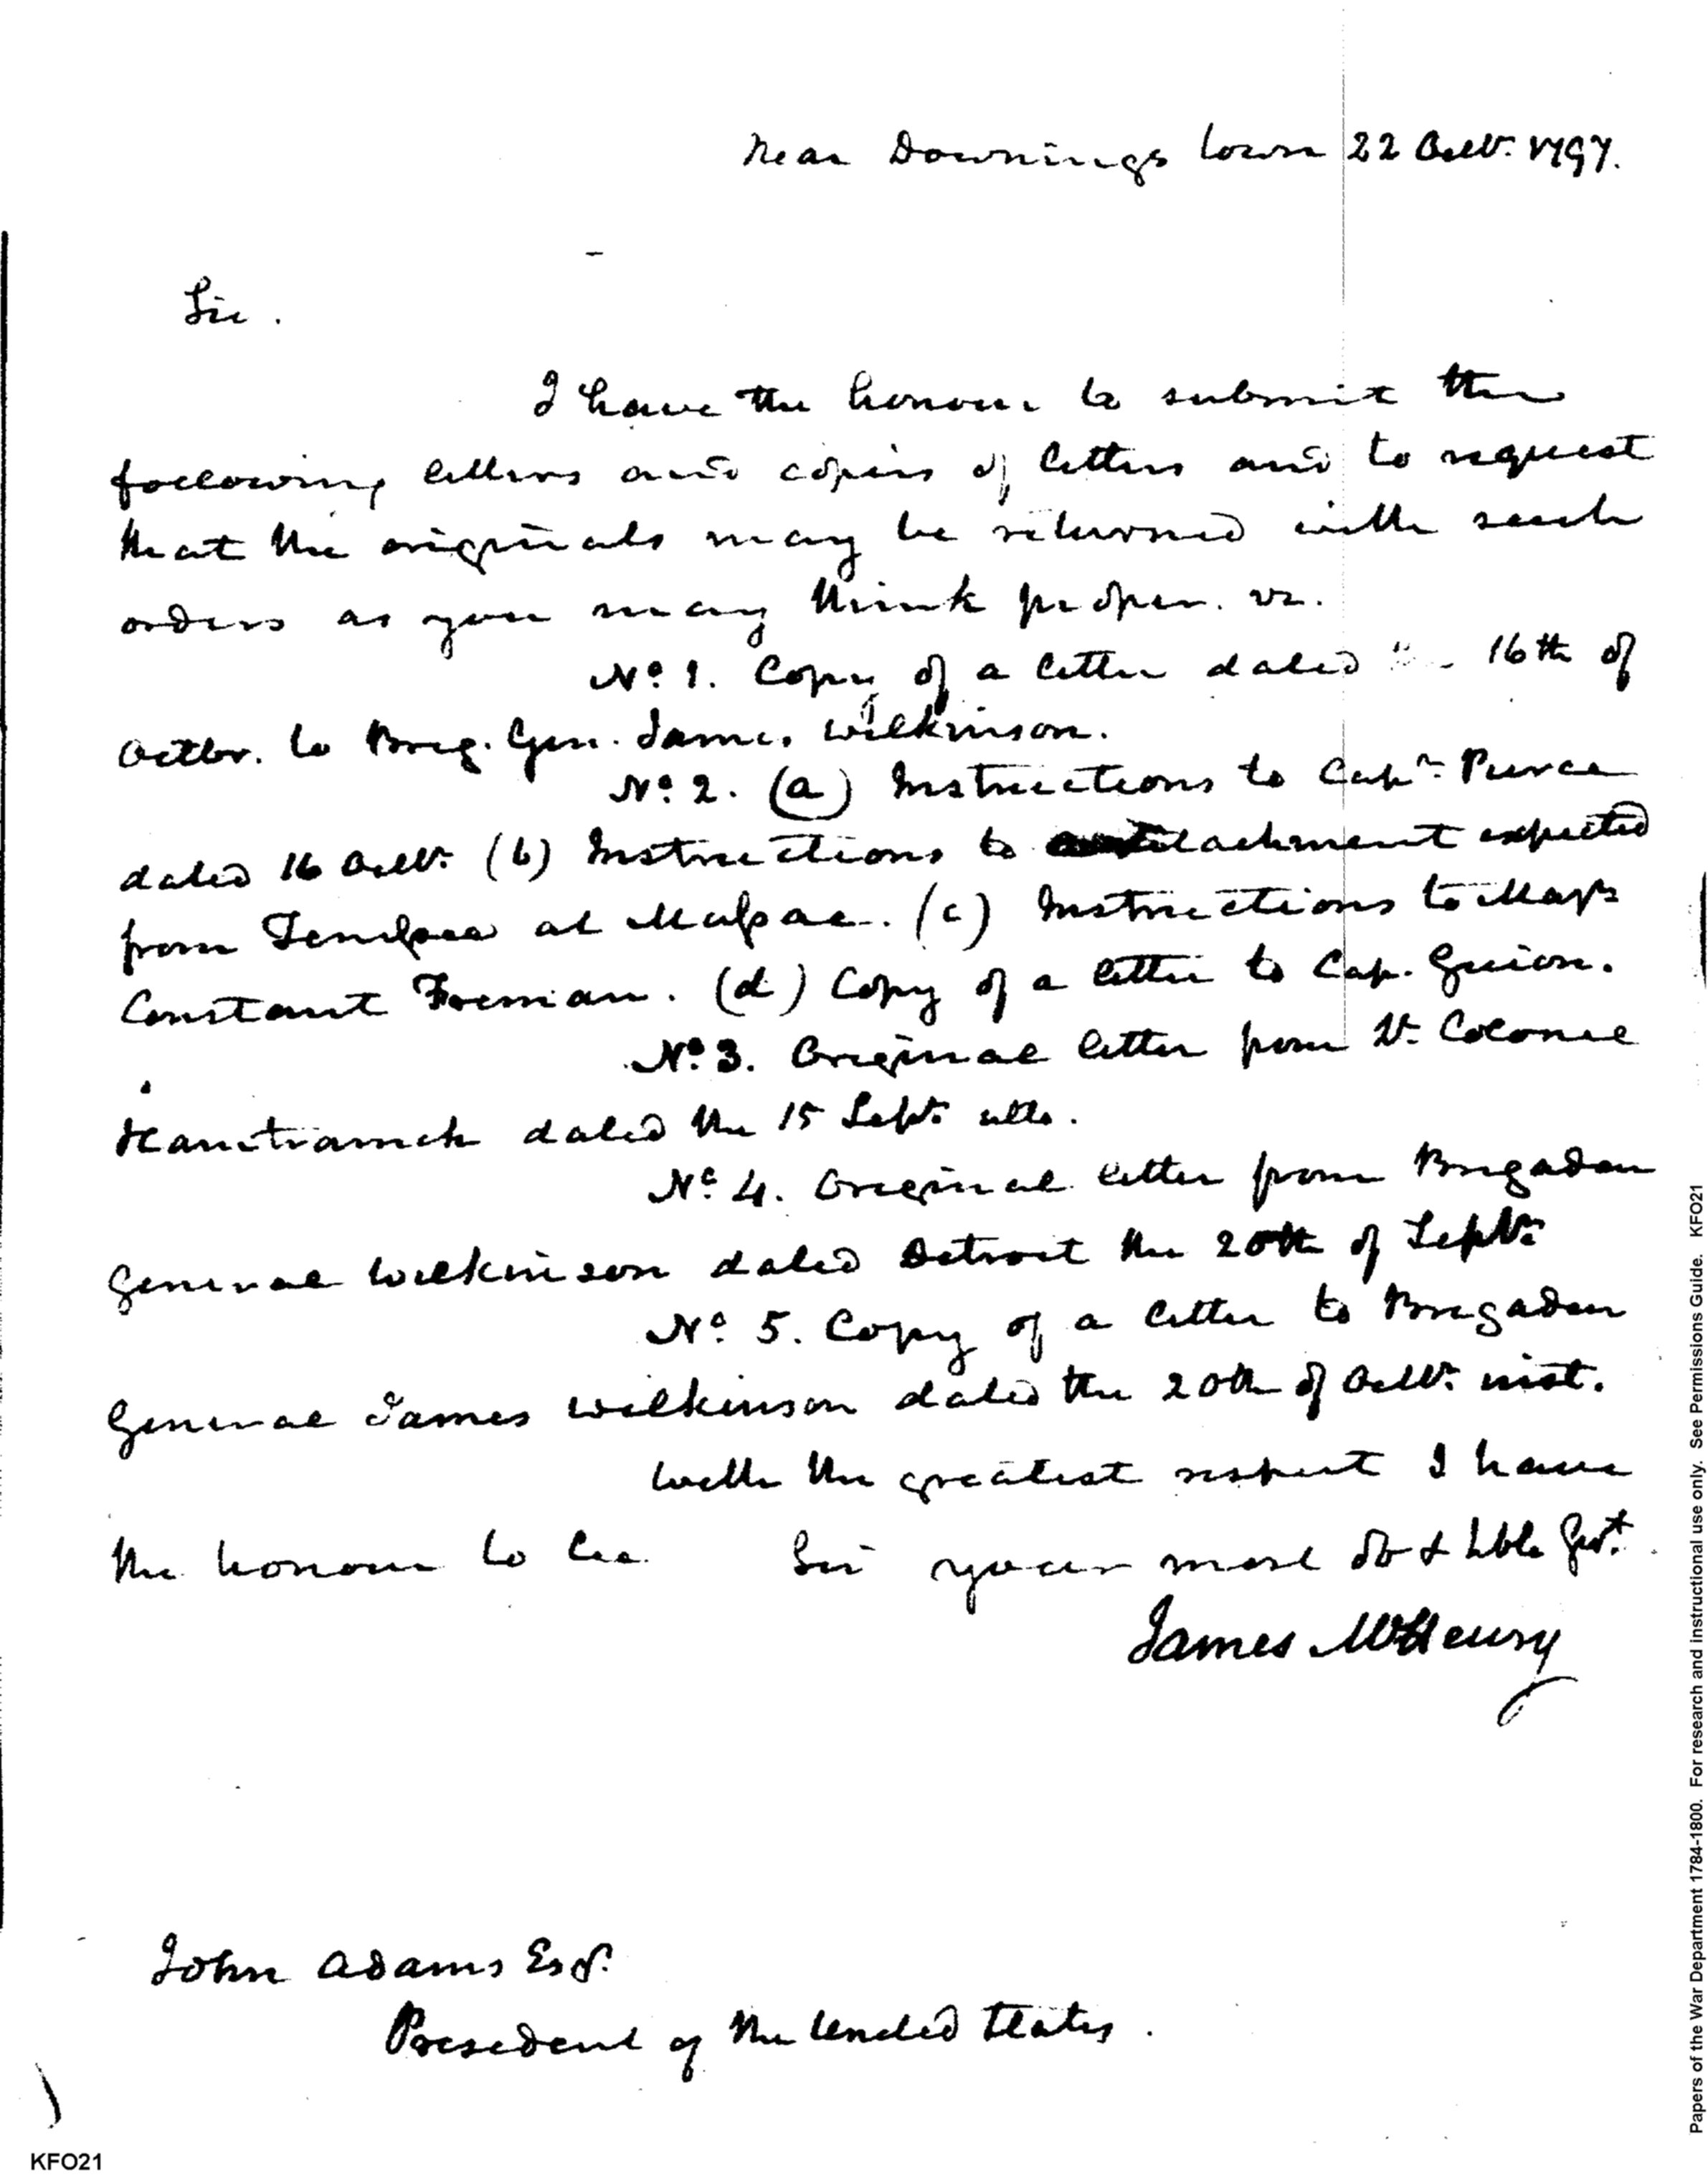 Near Downings town 22 Octbr. 1797.
Sir.
I have the honour to submit the
following letters and copies of letters and to request
that the originals may be returned with such
orders as you may think proper. vz.
No. 1. Copy of a letter dated 16th of
Octbr. to Brig. Gen. James Wilkinson.
No. 2. (a) Instructions to Capn. Pierce
dated 16 Octbr. (b) Instructions to detachment expected
from Tennessee at Massac. (c) Instructions to Majr.
Constant Freeman. (d) Copy of a letter to Cap. Guion.
No. 3. Original letter from Lt. Colonel
Hamtramck dated the 15 Sept. ulto.
No. 4. Original letter from Brigadier
General Wilkinson dated Detroit the 20th of Septbr.
No. 5. Copy of a letter to Brigadier
General James Wilkinson dated the 20th of Octbr. inst.
With the greatest respect I have
the honour to be Sir your most ob & hble Svt.
James McHenry
John Adams Esqr.
President of the United States.
KFO21
Papers of the War Department 1784-1800. For research and instructional use only. See Permissions Guide. KFO21